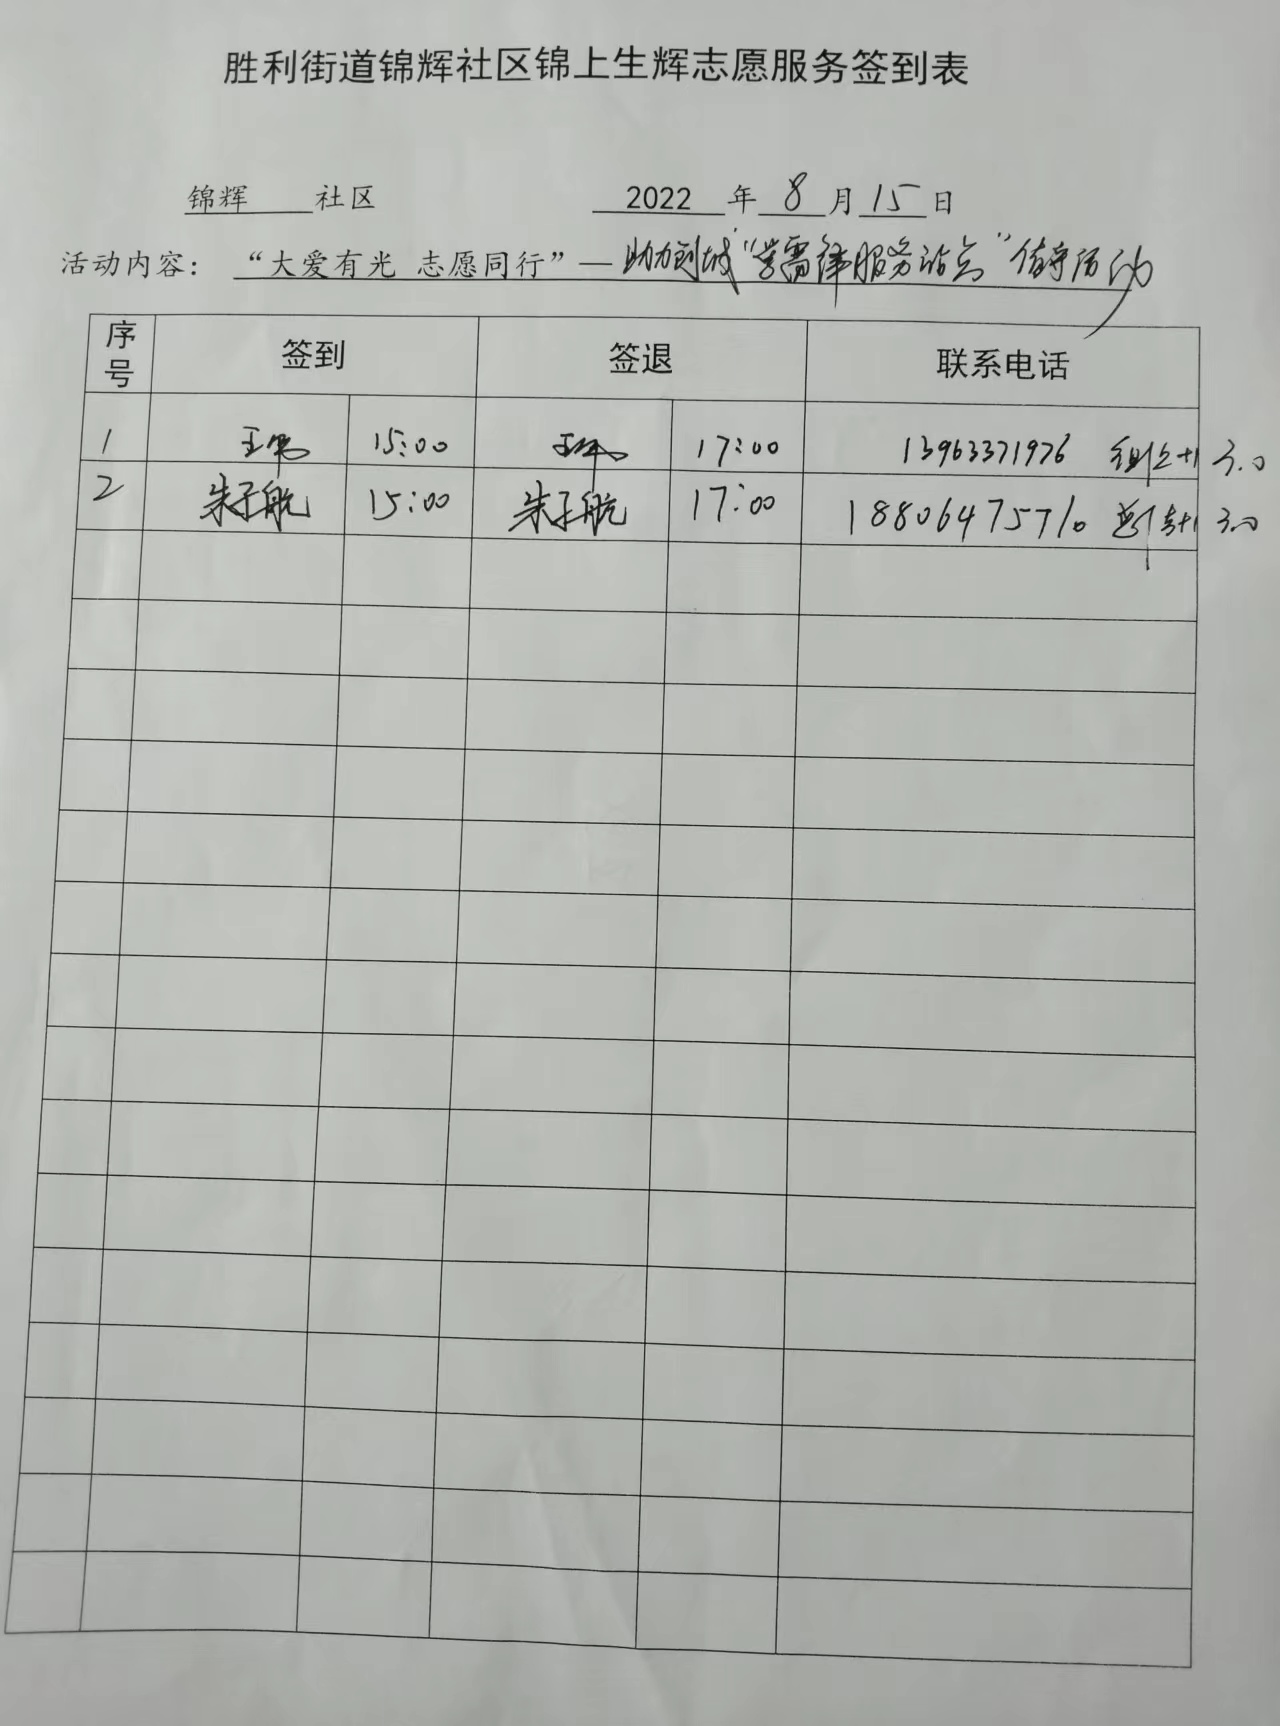 胜利街道锦辉社区锦上生辉志愿服务签到表
锦辉 社区 2022 年 8 月 15 日
活动内容： “大爱有光 志愿同行”— 助力创城“学雷锋服务站点”值守活动
序号 签到 签退 联系电话
1 王伟 15:00 王伟 17:00 13963371976 3.0
2 朱子航 15:00 朱子航 17:00 18806475710 3.0